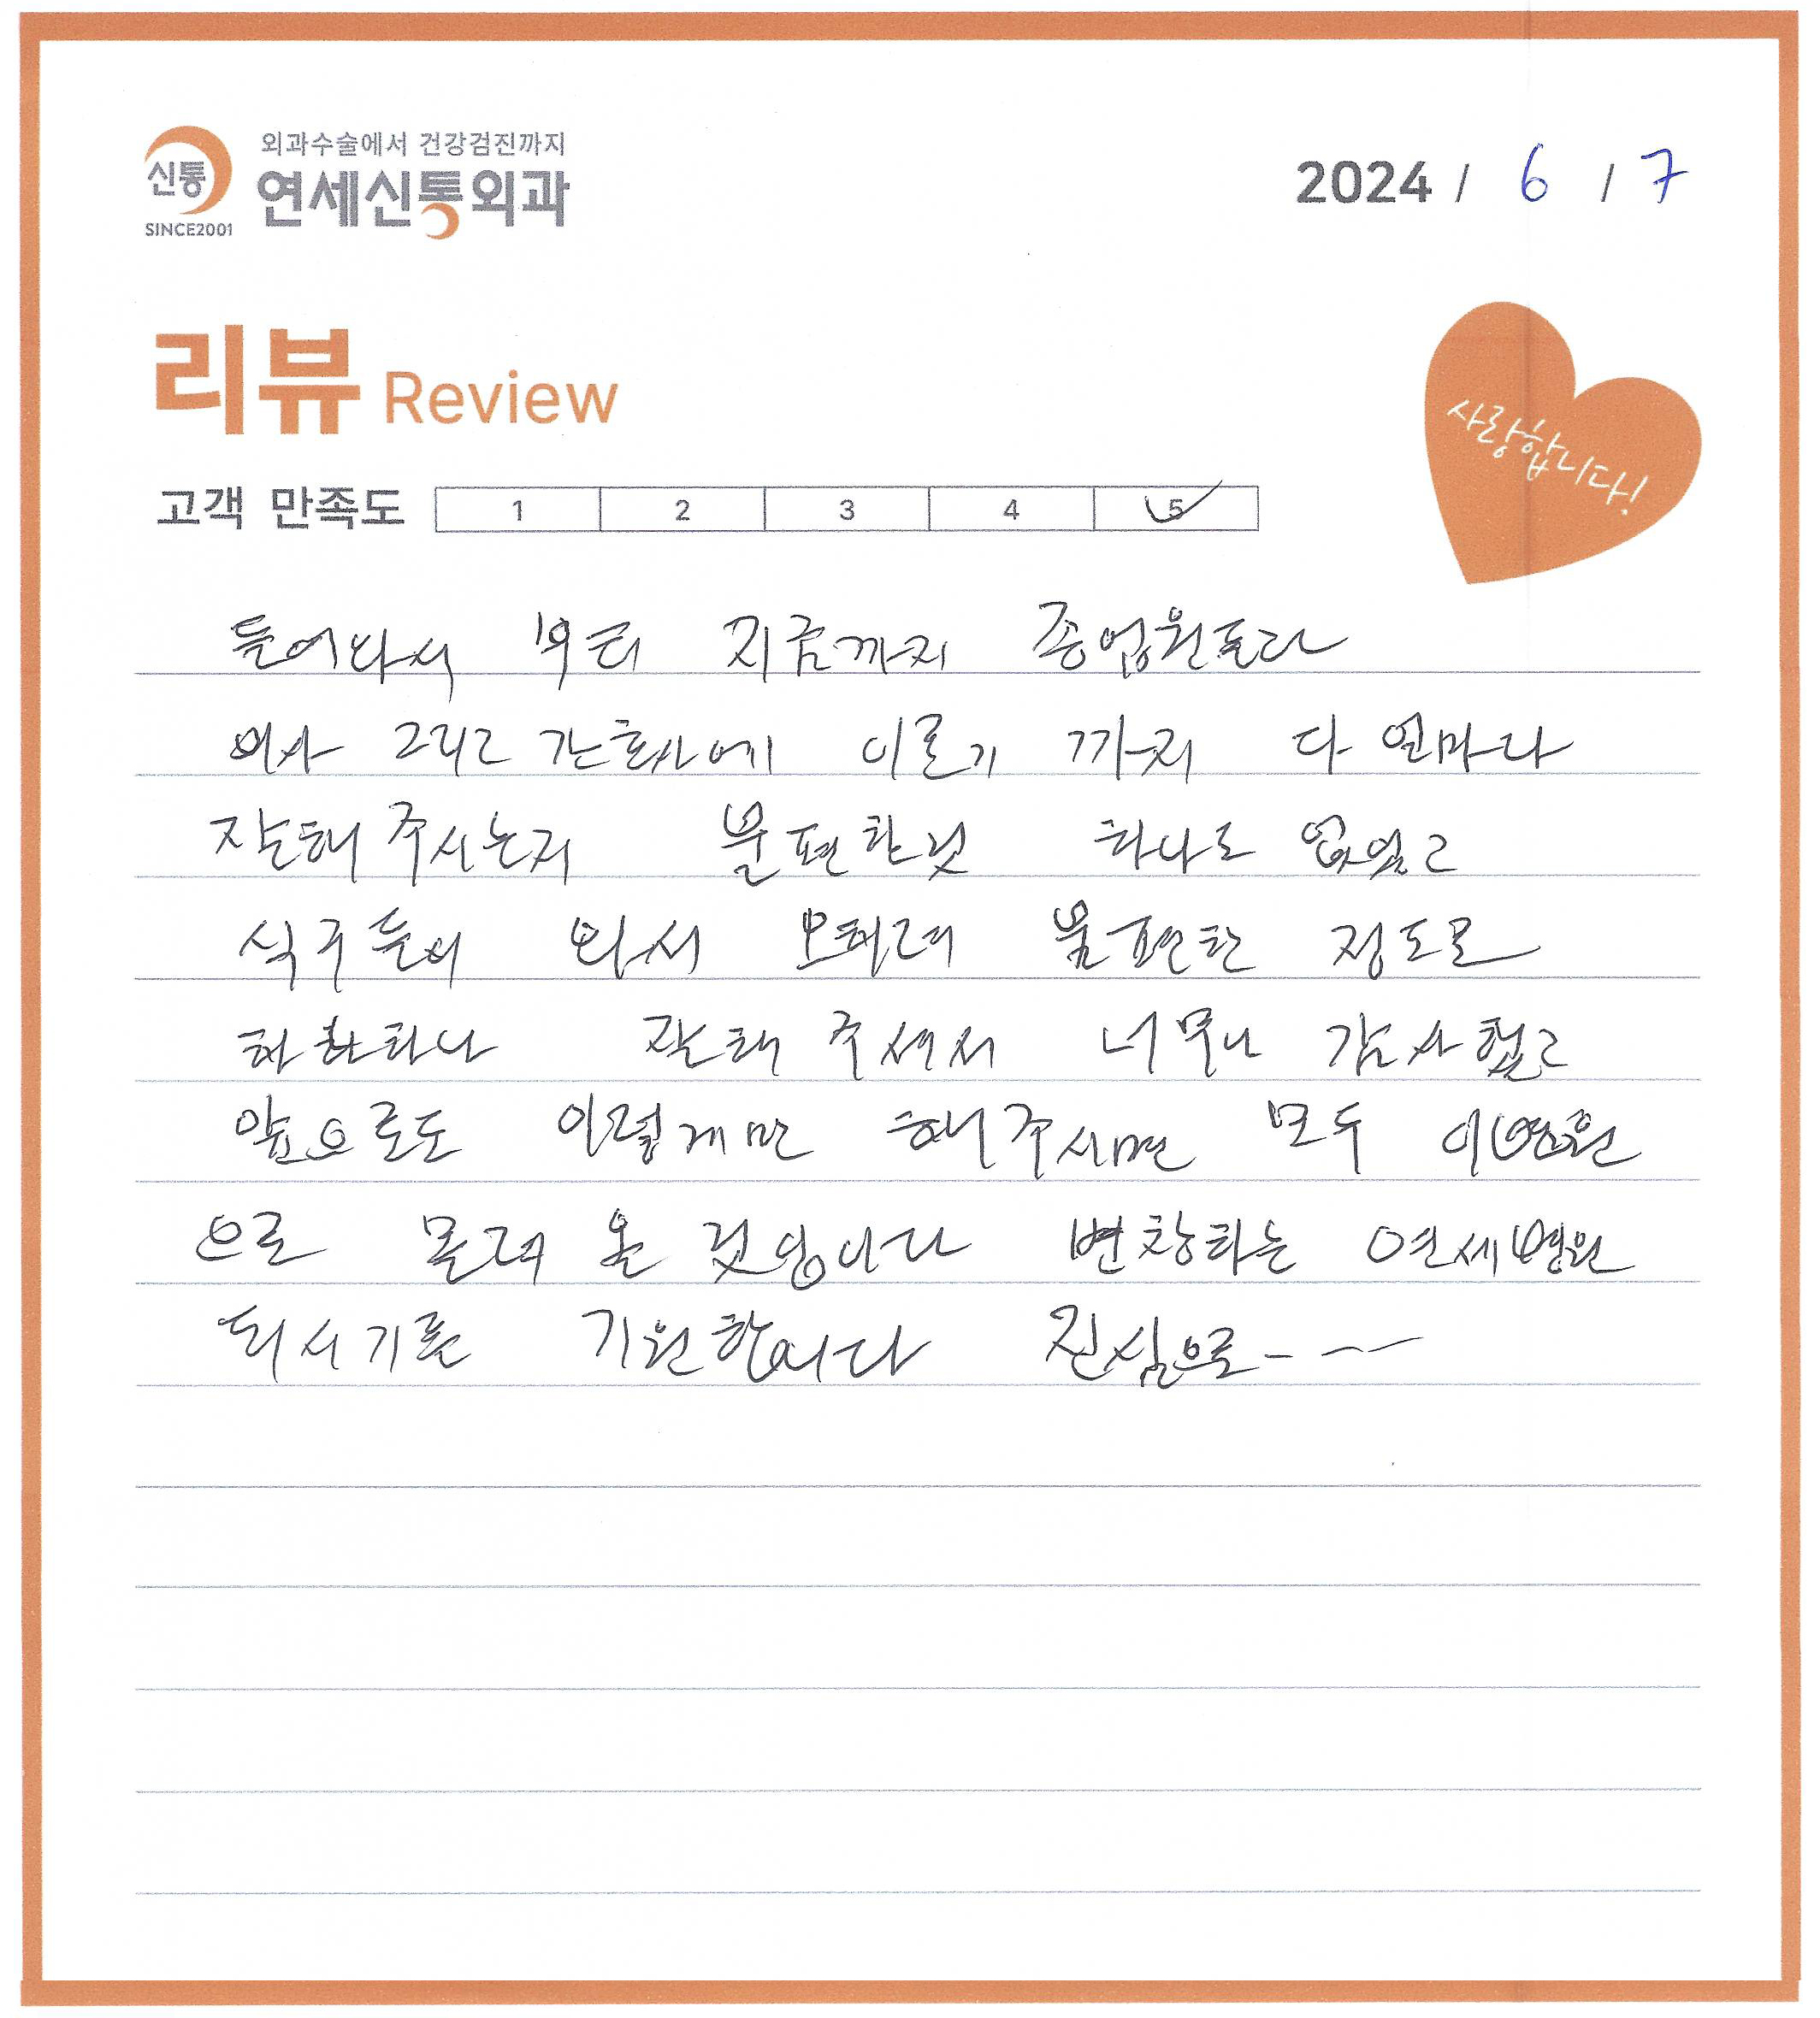 외과수술에서 건강검진까지
신통
연세신통외과
SINCE2001
2024 / 6 / 7
리뷰 Review
사랑합니다!
고객 만족도 1 2 3 4 5
들어와서 부터 지금까지 종업원들다
의사 그리고 간호사에 이르기 까지 다 얼마나
잘해 주시는지 불편한것 하나도 없었고
식구들이 와서 오히려 불편한 정도로
하나 잘해 주셔서 너무나 감사했고
앞으로도 이렇게만 해주시면 모두 이병원
으로 몰려 올 것입니다 번창하는 연세병원
되시기를 기원합니다 진심으로- - -